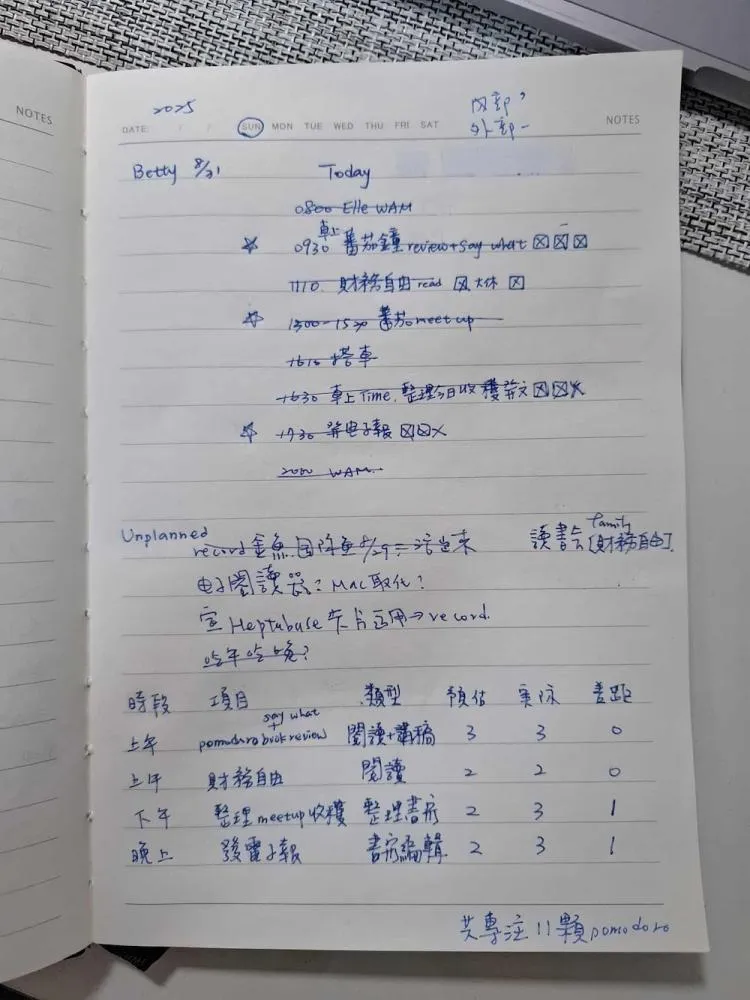 NOTES
2025
內部'
DATE: / / SUN MON TUE WED THU FRI SAT
外部-
NOTES
Betty 8/31 Today
0800 Elle WAM
車上
☆ 0930 蕃茄鐘 review+say what ☒ ☒ ☒
1110 財務自由 read ☒ 大休 ☒
☆ 1300-1530 蕃茄meet up
1610 搭車
1630 車上Time, 整理今日收穫發文 ☒☒X
☆ 1730 發电子報 ☒☒X
2000 WAM
Unplanned
record 金魚 8/29 活出來
family
讀書會[財務自由]
电子閱讀器? Mac取代?
Heptabase 卡片 →record.
吃午吃晚?
時段 項目 類型 預估 實际 差距
say what
+
上午 pomodoro book review 閱讀+講稿 3 3 0
上午 財務自由 閱讀 2 2 0
下午 整理meetup收穫 整理書寫 2 3 1
晚上 發電子報 書寫編輯 2 3 1
共專注11顆pomodoro